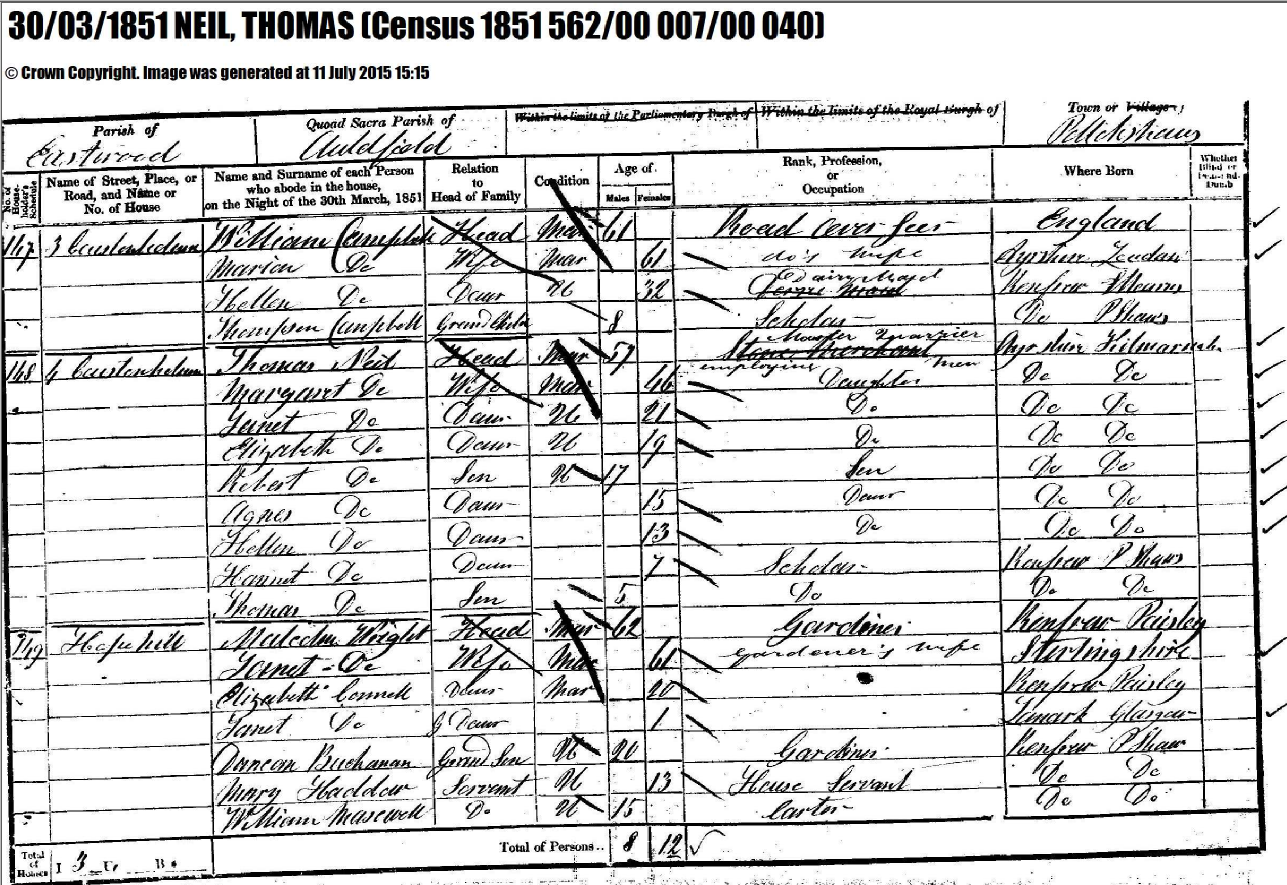 30/03/1851 NEIL, THOMAS (Census 1851 562/00 007/00 040)
© Crown Copyright. Image was generated at 11 July 2015 15:15
Parish of Quoad Sacra Parish of Within the limits of the Parliamentary Burgh of Within the limits of the Royal Burgh of Town or Village,
Eastwood Auldfield Pollokshaws
No. of House-holder's Schedule Name of Street, Place, or Road, and Name or No. of House Name and Surname of each Person who abode in the house, on the Night of the 30th March, 1851 Relation to Head of Family Condition Age of Males Females Rank, Profession, or Occupation Where Born Whether Blind or Deaf-and-Dumb
147 3 William Campbell Head Mar 61 Road over seer England
Marion Do Wife Mar 61 do's wife Ayrshire
Hellen Do Daur U 32 Dairy Maid Renfrew Mearns
Thompson Campbell Grand Child 8 Scholar Do P Shaws
148 4 Thomas Neil Head Mar 57 Stone Merchant Master Quarrier employing men Ayrshire Kilmarnock
Margaret Do Wife Mar 46 Daughter Do Do
Janet Do Daur U 21 Do Do Do
Elizabeth Do Daur U 19 Do Do Do
Robert Do Son U 17 Son Do Do
Agnes Do Daur 15 Daur Do Do
Hellen Do Daur 13 Do Do Do
Hannet Do Daur 7 Scholar Renfrew P Shaws
Thomas Do Son 5 Do Do Do
149 Hope hill Malcolm Wright Head Mar 62 Gardiner Renfrew Paisley
Janet Do Wife Mar 61 gardener's wife Sterlingshire
Elizabeth Connell Daur Mar 20 Renfrew Paisley
Janet Do G Daur 1 Lanark Glasgow
Duncan Buchanan Grand Son U 20 Gardiner Renfrew P Shaw
Mary Haddow Servant U 13 House Servant Do Do
William Maxwell Do U 15 Carter Do Do
Total of Houses I 3 U B Total of Persons.. 8 12